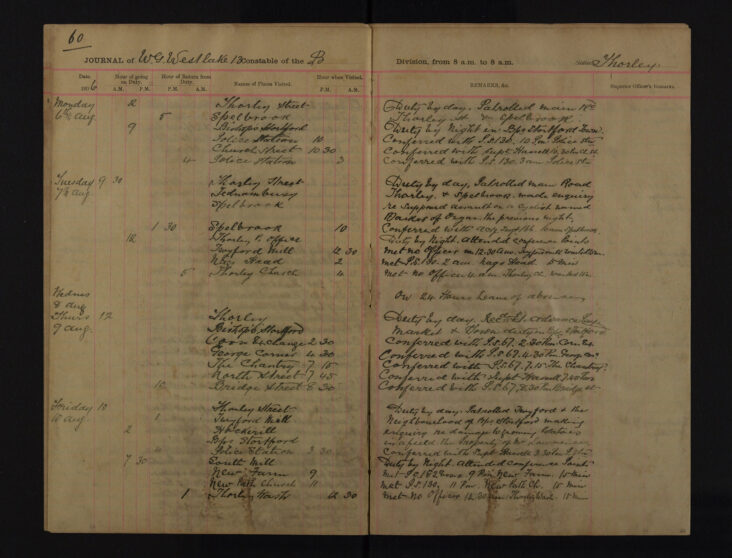 60
JOURNAL of W G Westlake 13 Constable of the B Division, from 8 a.m. to 8 a.m. Station Thorley
Date. Hour of going on Duty. Hour of Return from Duty. Names of Places Visited. Hour when Visited. REMARKS, &c. Superior Officer's Remarks.
190 6 A.M. P.M. A.M. P.M. A.M. P.M.
Monday 2 Thorley Street Duty by day. Patrolled main Rd
6th Aug 5 Spelbrook Thorley St & Spelbrook.
9 Bishops Stortford Duty by Night in Bps Stortford Town.
Police Station 10 Conferred with P.S. 130. 10 Pm Police Stn
Church Street 10 30 Conferred with Supt 10.30
4 Police Station 3 Conferred with P.S 130 3 am Police Stn
Tuesday 9 30 Thorley Street Duty by day, Patrolled main Road
7th Aug Thorley & Spelbrook. made enquiry
Spelbrook re supposed assault on a cyclist named
the previous night,
1 30 Spelbrook 10 Conferred with
12 Thorley P. Office Duty by Night. Attended conference Points
Twyford Mill 12 30 met no Officer 12.30 am. Twyford Mill
Nag Head 2 met P.S. 130. 2 am Nags Head 15 min
5 Thorley Church 4 met no Officer 4 am Thorley Ch.
Wednes On 24 Hours leave of absence
8 Aug
Thurs 12 Thorley Duty by day.
9 Aug. Bishops Stortford Market & Town duty in Bps Stortford
Corn Exchange 2 30 Conferred with P.S. 67. 2.30 Pm Corn Ex
George Corner 4 30 Conferred with P.S 67. 4.30 Pm George Cnr
The Chantry 7 15 Conferred with P.S. 67. 7.15 The Chantry
North Street 7 45 Conferred with Supt 7.45 Pm
12 Bridge Street 8 30 Conferred with P.S. 67. 8.30 Pm Bridge St
Friday 10 Thorley Street Duty by day. Patrolled Twyford & the
10 Aug 1 Twyford Mill Neighbourhood of Bps Stortford making
2 Hockerill enquiry re damage to growing
Bps Stortford in a field the property of Mr
4 Police Station 3 30 Conferred with Supt 3.30
7 30 South Mill Duty by Night. Attended conference Points
New Farm 9 met P.S. 9 Pm New Farm. 15 min
New Path Church 11 met P.S. 130, 11 Pm. New Path Ch. 15 min
1 Thorley Wash 12 30 met no Officer 12.30 am Thorley Wash. 15 m